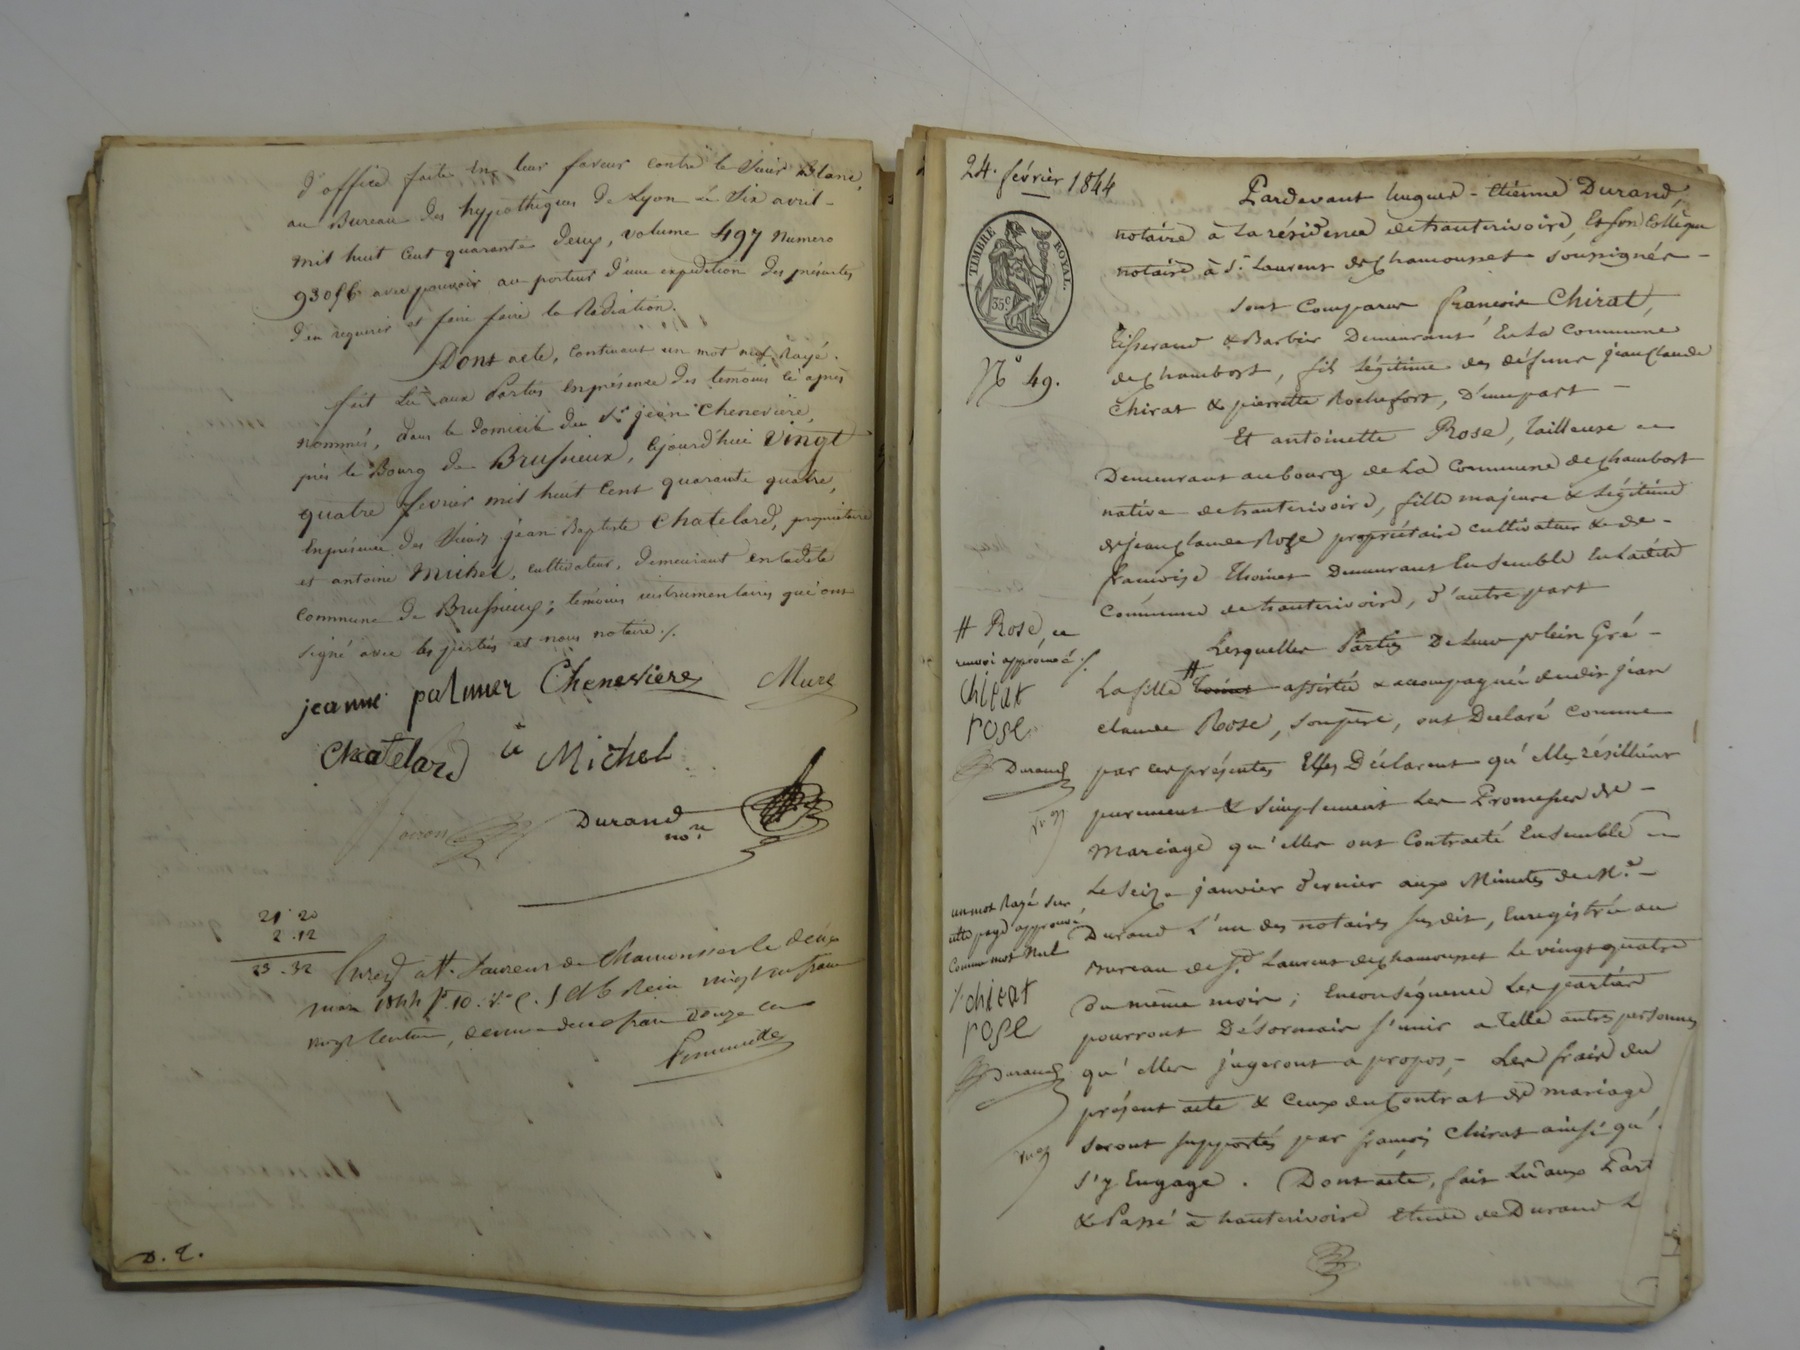 d'office faite en leur faveur contre le Sieur Blanc,
au Bureau des hypothèques de Lyon le Six avril -
mil huit Cent quarante deux, volume 497 numero
93086 avec pouvoir au porteur d'une expedition des présentes
d'en requerir et faire faire la Radiation.
Dont acte, contenant un mot nul Rayé.
fait Lu aux Parties En présence des temoins ci après
nommés, dans le domicile du Sr. jean Chenevière,
près le Bourg de Brussieux, cejourd'hui Vingt
quatre fevrier mil huit Cent quarante quatre,
En présence des Sieurs jean Baptiste Chatelard, propriétaire
et antoine Michel, cultivateur, demeurant en ladite
commune de Brussieux; temoins instrumentaires qui ont
signé avec les parties et nous notaire ./.
jeanne palmier Cheneviere Mure
Chatelard a Michel
Durand
nore
21 . 20
2 . 12
23 . 32
Enregé à St. Laurent de Chamousset le deux
mars 1844 fo. 10. vo. C. 5 et 6 Reçu vingt un francs
vingt Centimes, decime deux francs douze ces
D. E.
24. février 1844
TIMBRE ROYAL.
35 c
No. 49.
Pardevant hugues - Etienne Durand,
notaire à la résidence de hauterivoire, Et son Collègue
notaire à St. Laurent de Chamousset soussignés -
Sont Comparus françois Chirat,
Tisserand & Barbier Demeurant En la Commune
de Chambost, fils légitime des défunts jean Claude
Chirat & pierrette Rochefort, D'une part -
Et antoinette Rose, Tailleuse -
Demeurant au bourg de la Commune de Chambost
native de hauterivoire, fille majeure & légitime
de jean Claude Rose propriétaire cultivateur & de -
françoise Thoinet Demeurant Ensemble En ladite
Commune de hauterivoire, d'autre part
Lesquelles Parties De leur plein Gré -
La fille # Toinet assistée & accompagnée dudit jean
claude Rose, son père, ont Déclaré Comme
par ces présentes Elles Déclarent qu'elles résillient
purement & simplement Les Promesses de -
Mariage qu'elles ont Contracté Ensemble -
Le Seize janvier dernier aux Minutes de Me. -
Durand L'un des notaires susdit, Enregistrée au
Bureau de St. Laurent de Chamousset Le vingt quatre
du même mois; En conséquence Les parties
pourront Désormais s'unir a Telle autres personnes
qu'elles jugeront a propos, - Les frais du
présent acte & Ceux du Contrat de mariage
seront supportés par françois Chirat ainsi qu'il
s'y Engage. Dont acte, fait Lu aux Part
& Passé à hauterivoire Etude de Durand L
# Rose, ce
renvoi approuvé ./.
chirat
rose
Durand
un mot Rayé sur
cette page approuvé
Comme mot Nul
./. chirat
rose
Durand